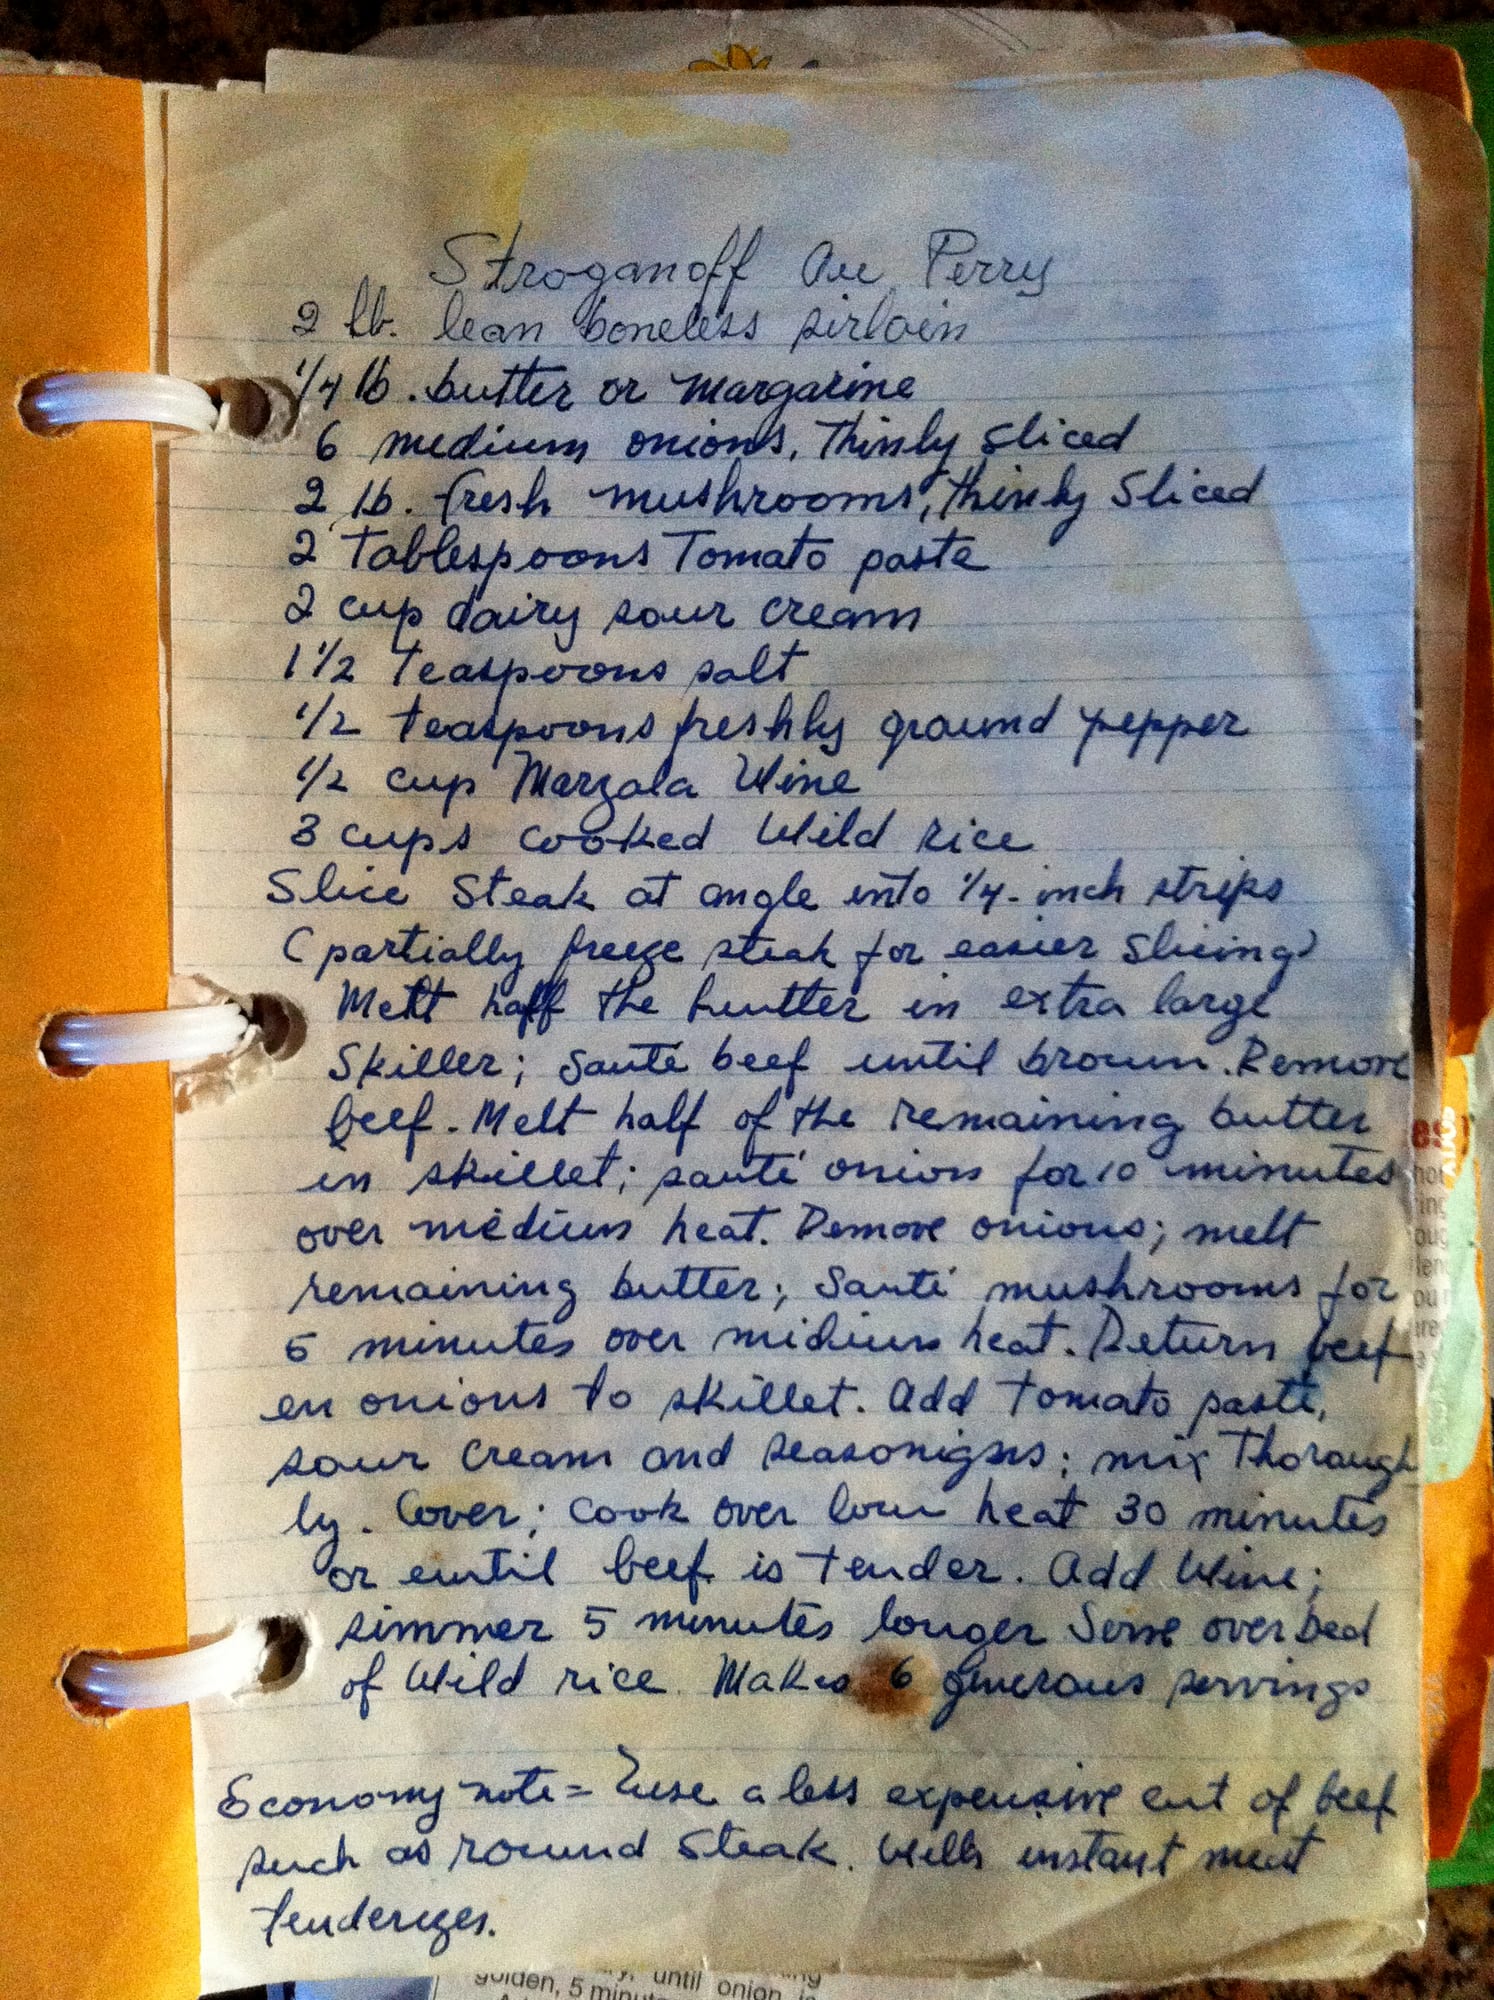 Stroganoff Au Perry
2 lb. lean boneless sirloin
1/4 lb. butter or margarine
6 medium onions, Thinly sliced
2 lb. fresh mushrooms, thinly sliced
2 Tablespoons Tomato paste
2 cup dairy sour cream
1 1/2 Teaspoons salt
1/2 teaspoons freshly ground pepper
1/2 cup Marzala Wine
3 cups cooked Wild rice
Slice Steak at angle into 1/4-inch strips
(partially freeze steak for easier slicing)
Melt half the butter in extra large
Skiller; Sauté beef until brown. Remove
beef. Melt half of the remaining butter
in skillet; sauté onions for 10 minutes
over medium heat. Remove onions; melt
remaining butter; Sauté mushrooms for
5 minutes over midium heat. Return beef
en onions to skillet. Add tomato paste,
sour cream and seasonigns; mix Thorough
ly. Cover; cook over low heat 30 minutes
or until beef is Tender. Add Wine;
simmer 5 minutes longer Serve over bed
of Wild rice. Makes 6 generous servings
Economy note = use a less expensive cut of beef
such as round Steak. With instant meat
golden, 5 minu
until onion